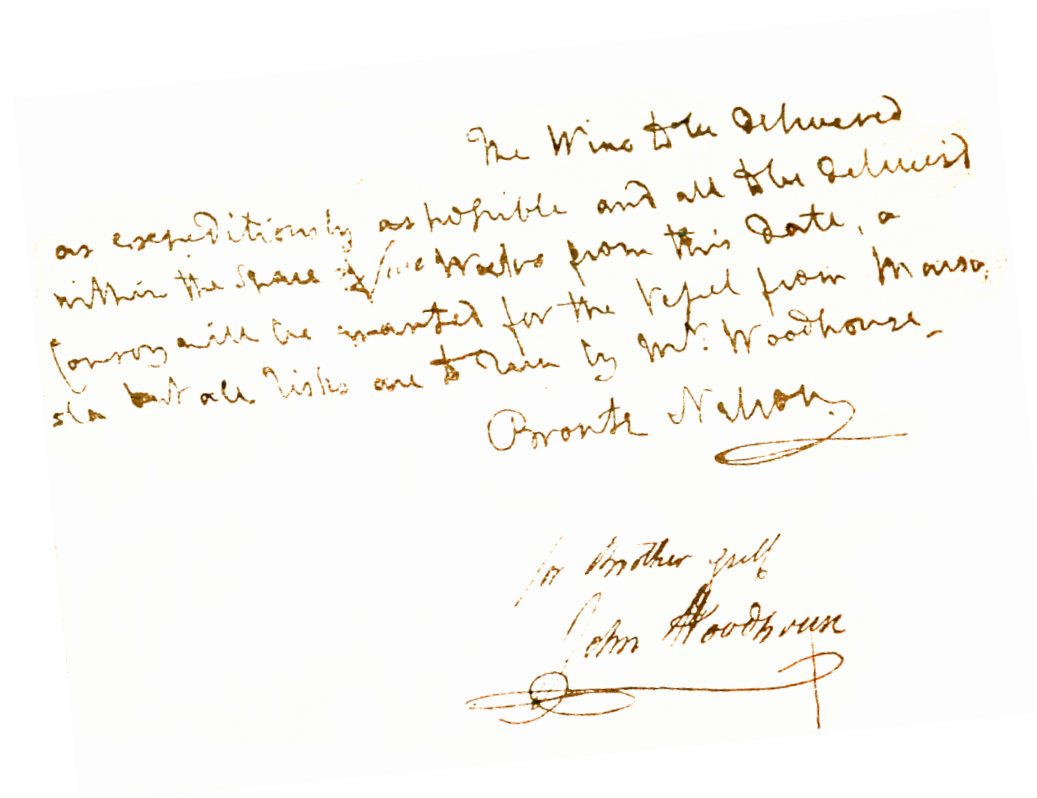 The Wine to be delivered
as expeditiously as possible and all to be deliverd
within the space of five Weeks from this date, a
Convoy will be wanted for the Vessel from Marsa,
sla but all risks are to run by Mr. Woodhouse_
Bronte Nelson.
for Brother & self
John Woodhouse